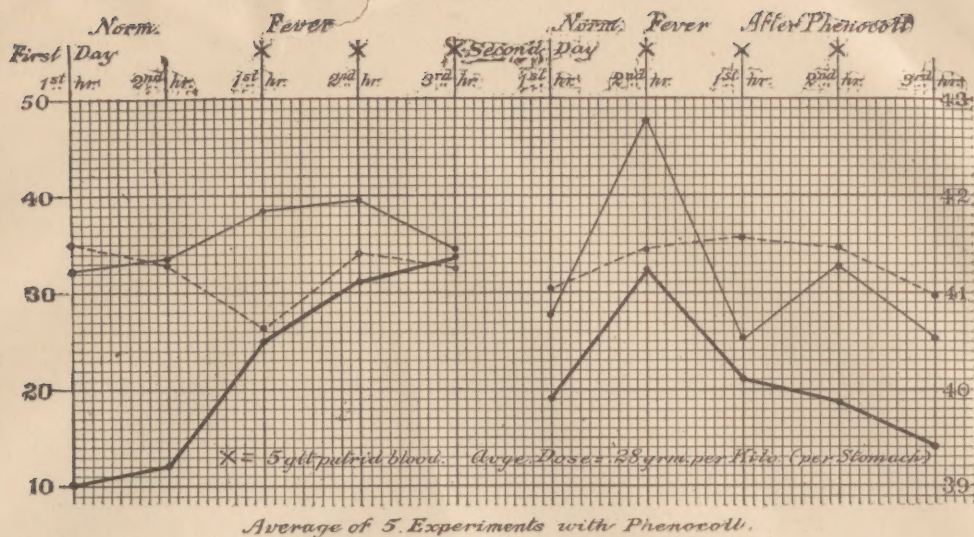 Norm. Fever Norm. Fever After Phenocoll
First Day Second Day
1st hr. 2nd hr. 1st hr. 2nd hr. 3rd hr. 1st hr. 2nd hr. 1st hr. 2nd hr. 3rd hr.
50 43
40 42
30 41
20 40
X = 5 gtt putrid blood. Avge. Dose = .28 grm. per Kilo (per Stomach)
10 39
Average of 5. Experiments with Phenocoll.